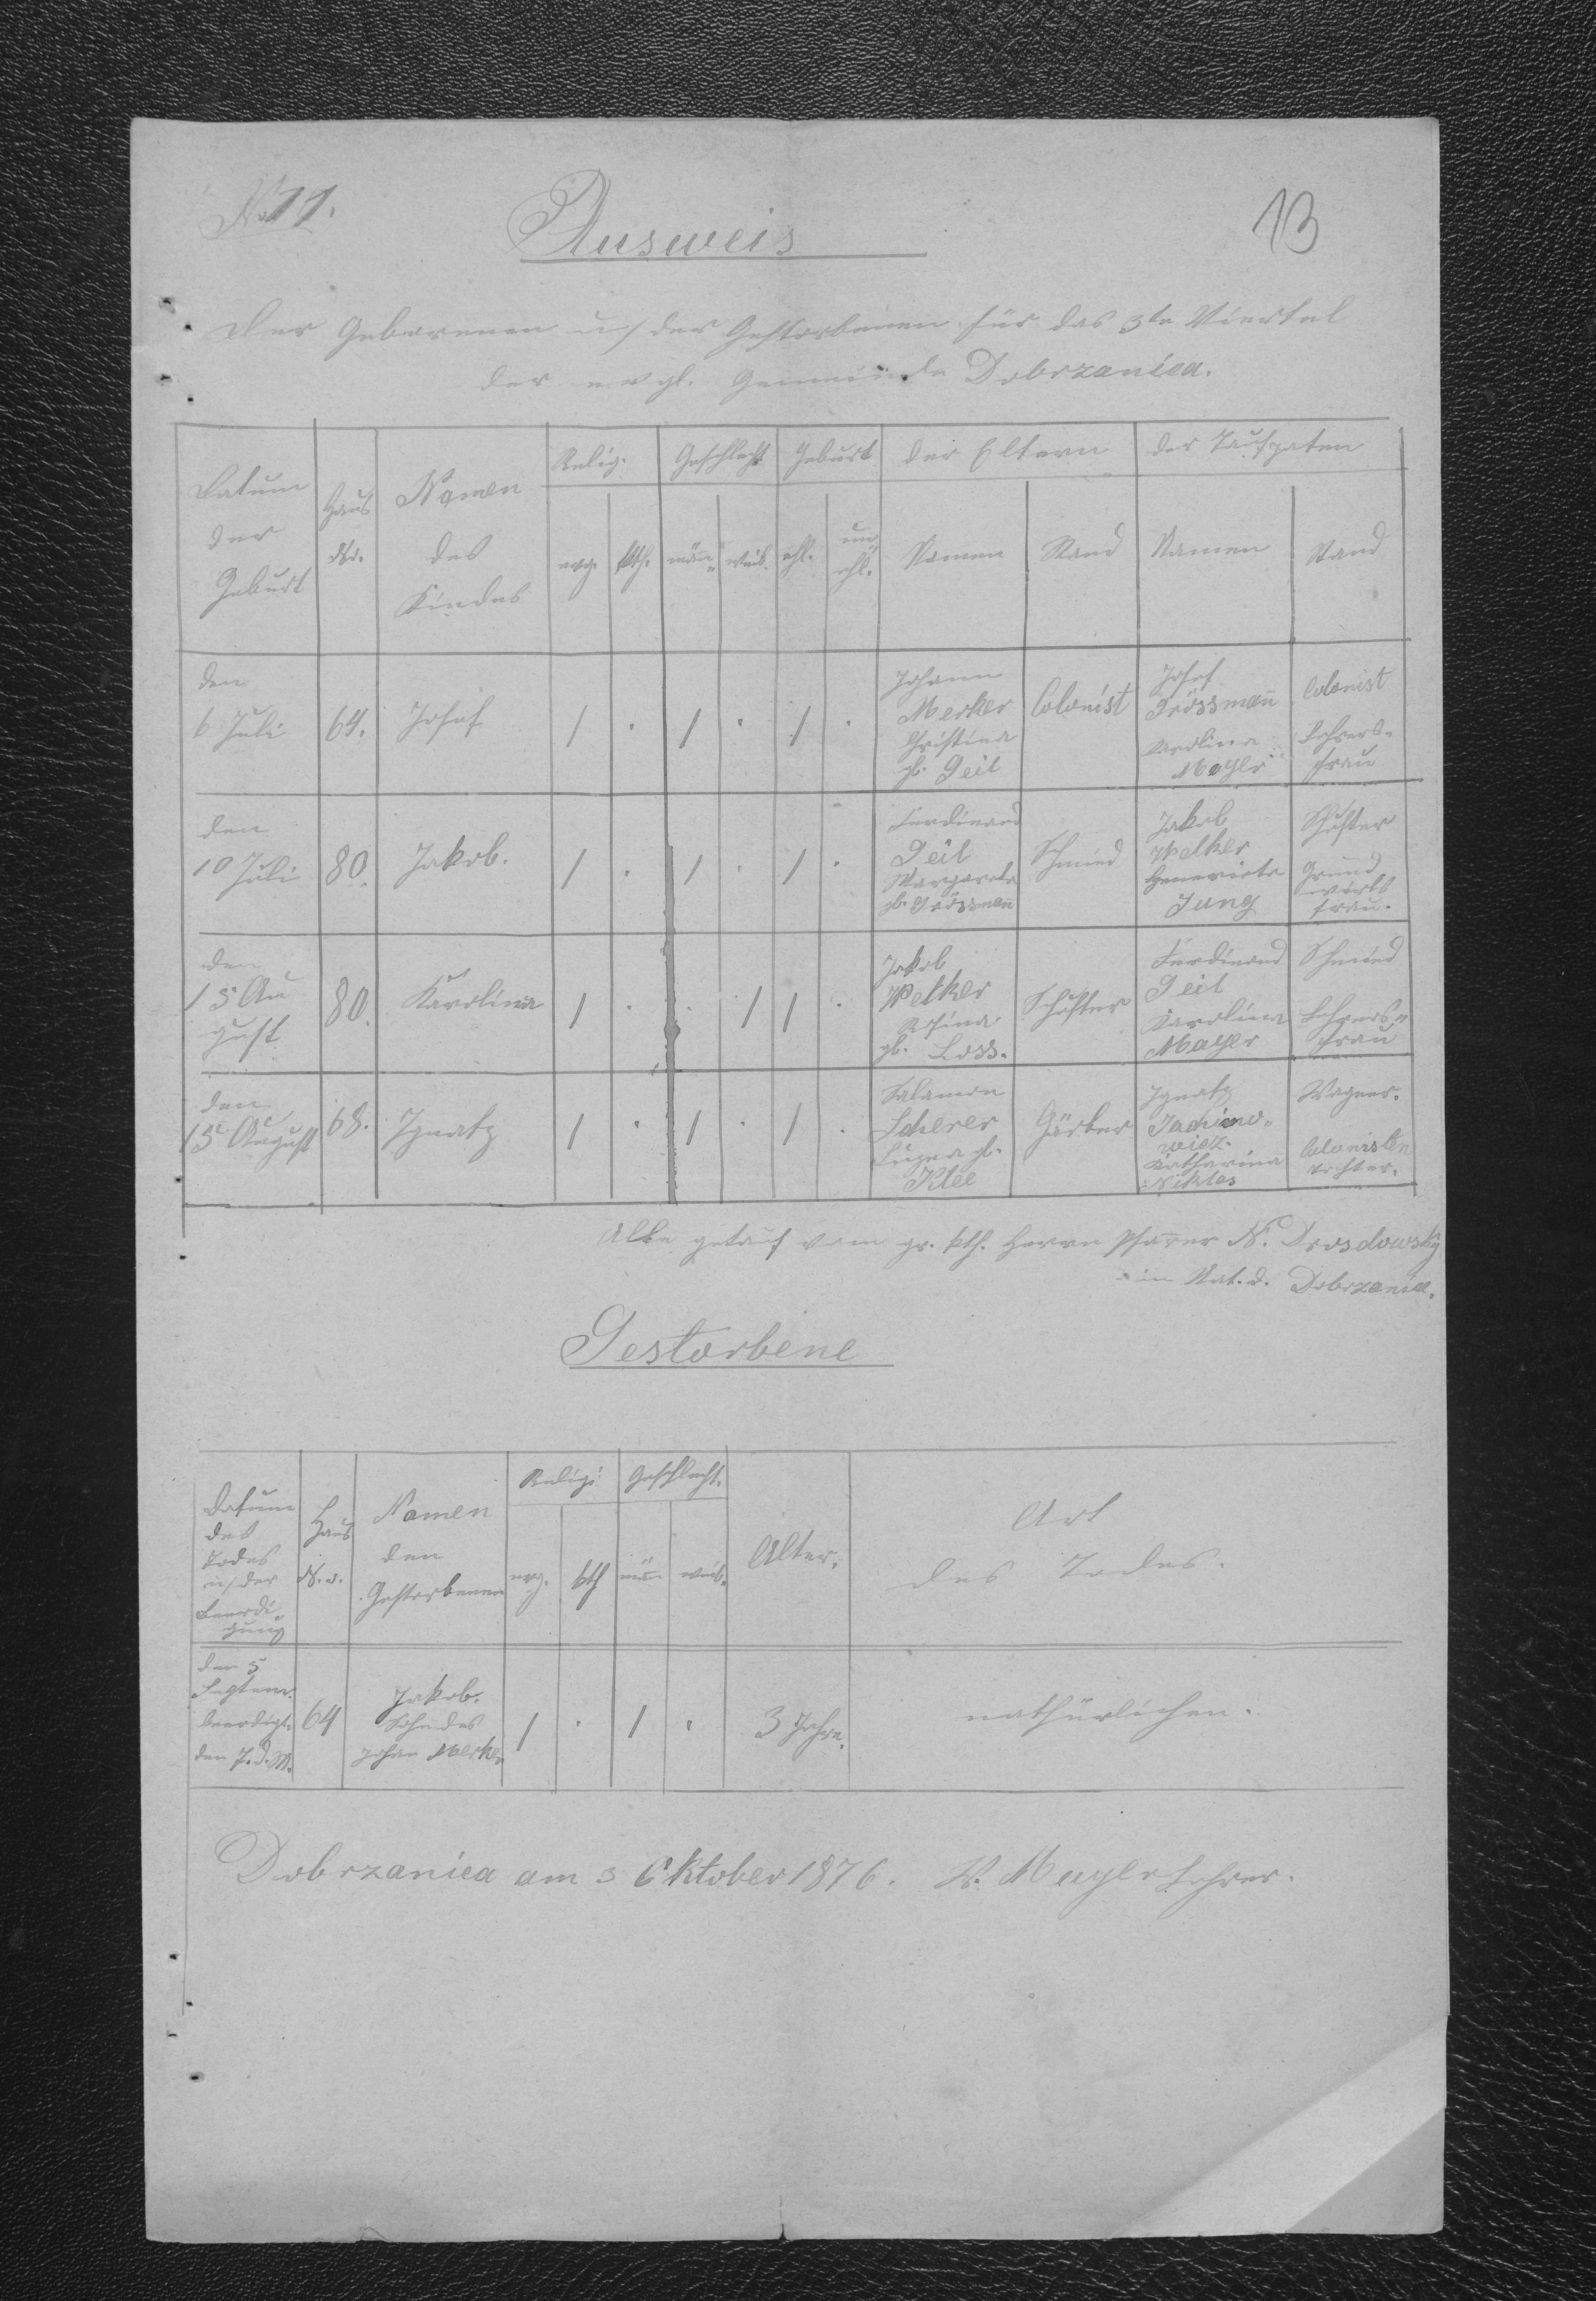 No 11.
13
Ausweis
Der Geborenen u/ der Gestorbenen für das 3te Viertel
der evgl. Gemeinde Dobrzanica.
Datum der Geburt
Haus No.
Namen des Kindes
Relig.
evg. kth.
Geschlecht
män. weib.
Geburt
ehl. un ehl.
der Eltern
Namen Stand
der Taufpaten
Namen Stand
den
6 Juli 64. Josef 1 . 1 . 1 .
Johann
Merker
Christina
gb. Geil
Colonist
Josef
Grössmañ
Karolina
Mayer
Colonist
Lehrers-
frau
den
10 Juli 80. Jakob. 1 . 1 . 1 .
Ferdinand
Geil
Margareta
gb. Grössmañ
Schmied
Jakob
Welker
Henerieta
Jung
Schuster
Grund
wirts
frau.
den
15 Au
gust
80. Karolina 1 . . 1 1 .
Jakob
Welker
gb. Loss.
Schuster
Ferdinand
Geil
Karolina
Mayer
Schmied
Lehrers-
frau
den
15 August 68. Ignatz 1 . 1 . 1 .
Salamon
Scherer
gb.
Klee
Gärber
Ignatz
Jachimo-
wicz.
Katharina
Niklas
Wagner.
Colonisten
tochter.
Alle getauf vom gr. kth. Herrn Pfarer N. Drosdowsky
in Dobrzanica.
Gestorbene
Datum
des
Todes
u/ der
Beerdi-
gung
Haus
N.o.
Namen
den
Gestorbenen
Religi
evg. kth
Geschlecht.
män weib.
Alter.
Art
des Todes.
den 5
Septem.
beerdigt.
den 7. d. M.
64
Jakob.
Sohn des
Johan Merker
1 . 1 .
3 Jahre.
nathürlichen.
Dobrzanica am 3 Oktober 1876. W. Mayer Lehrer.